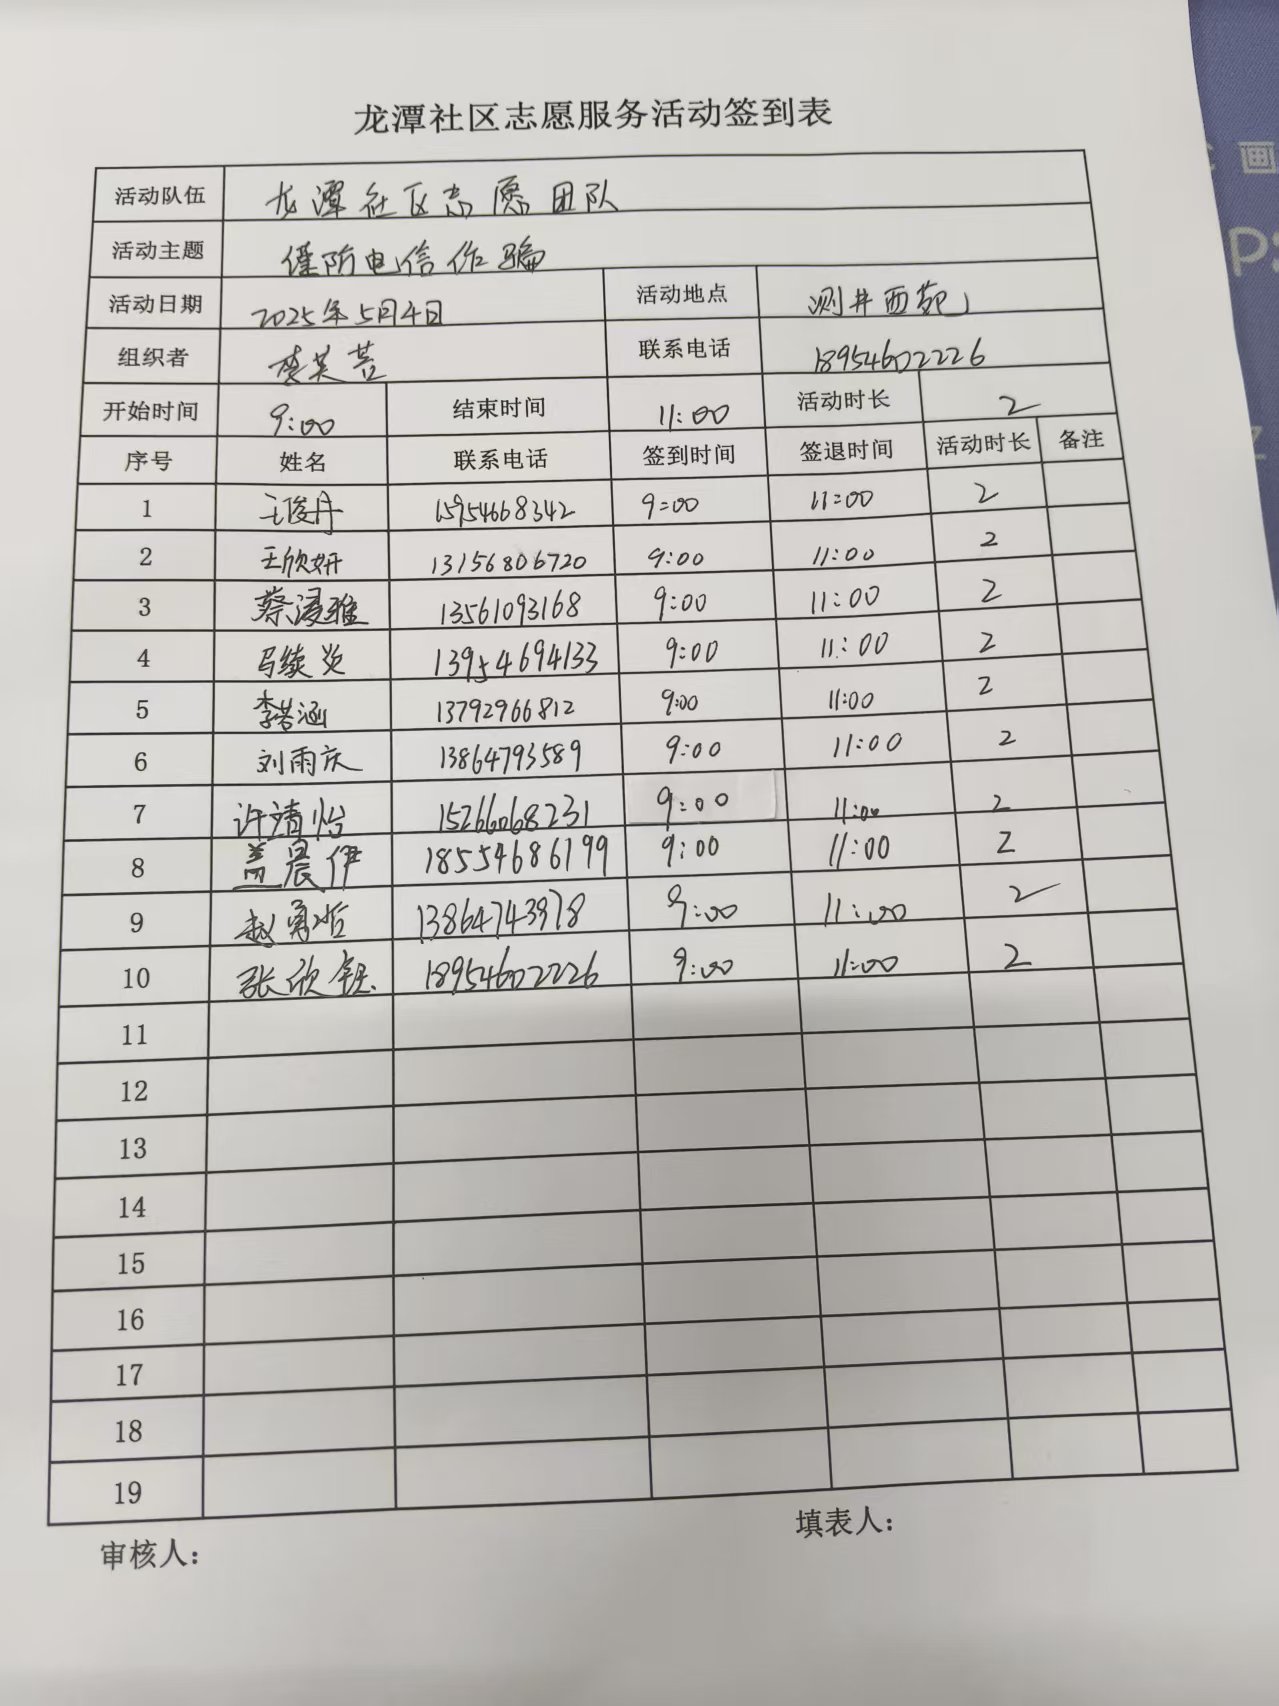 龙潭社区志愿服务活动签到表
活动队伍 龙潭社区志愿团队
活动主题 谨防电信诈骗
活动日期 2025年5月4日 活动地点 测井西苑
组织者 联系电话 18954602226
开始时间 9:00 结束时间 11:00 活动时长 2
序号 姓名 联系电话 签到时间 签退时间 活动时长 备注
1 王俊丹 15954668342 9:00 11:00 2
2 王欣妍 13156806720 9:00 11:00 2
3 13561093168 9:00 11:00 2
4 13954694133 9:00 11:00 2
5 李若涵 13792966812 9:00 11:00 2
6 刘雨欣 13864793589 9:00 11:00 2
7 许靖怡 15266068231 9:00 11:00 2
8 盖晨伊 18554686199 9:00 11:00 2
9 赵勇哲 13864743978 9:00 11:00 2
10 张欣 18954602226 9:00 11:00 2
11
12
13
14
15
16
17
18
19
审核人: 填表人: